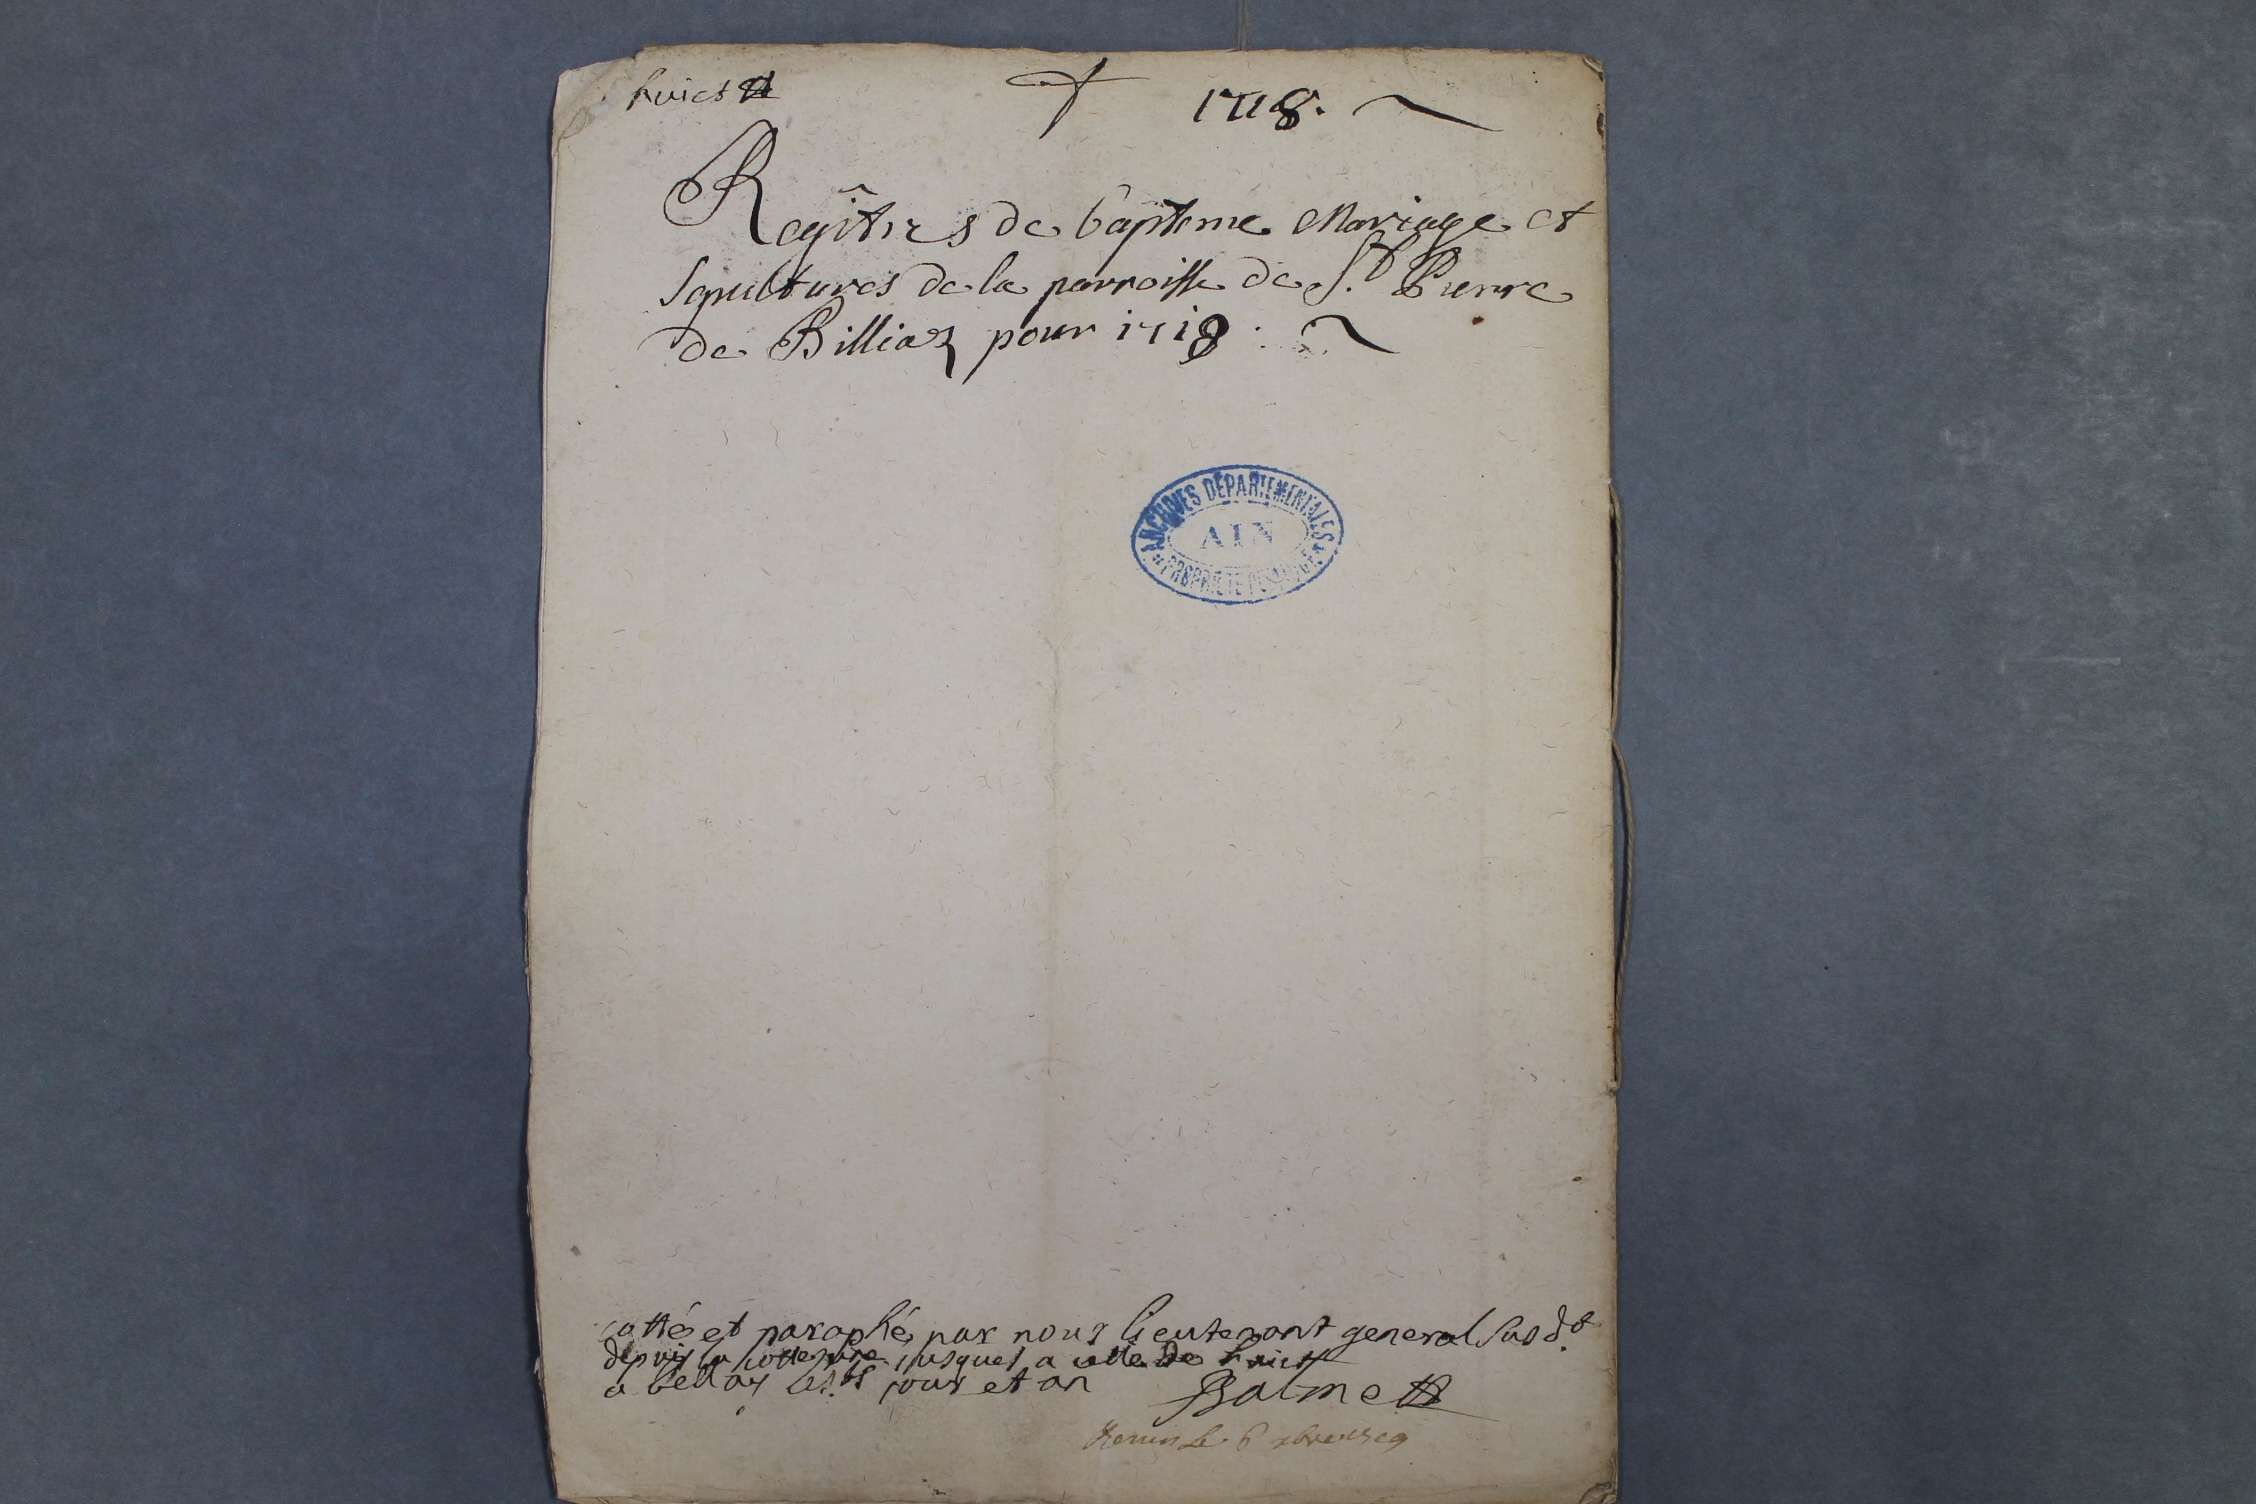 huict
1718.
Regîtres de bapteme Mariage et
Sepultures de la parroisse de St. Pierre
de Billiaz pour 1718.
ARCHIVES DÉPARTEMENTALES
AIN
PROPRIÉTÉ PUBLIQUE
cotté et paraphé par nous lieutenant general susdt.
depuis la cotte jusques a celle de huict
a bellay les jour et an Balme
le 6